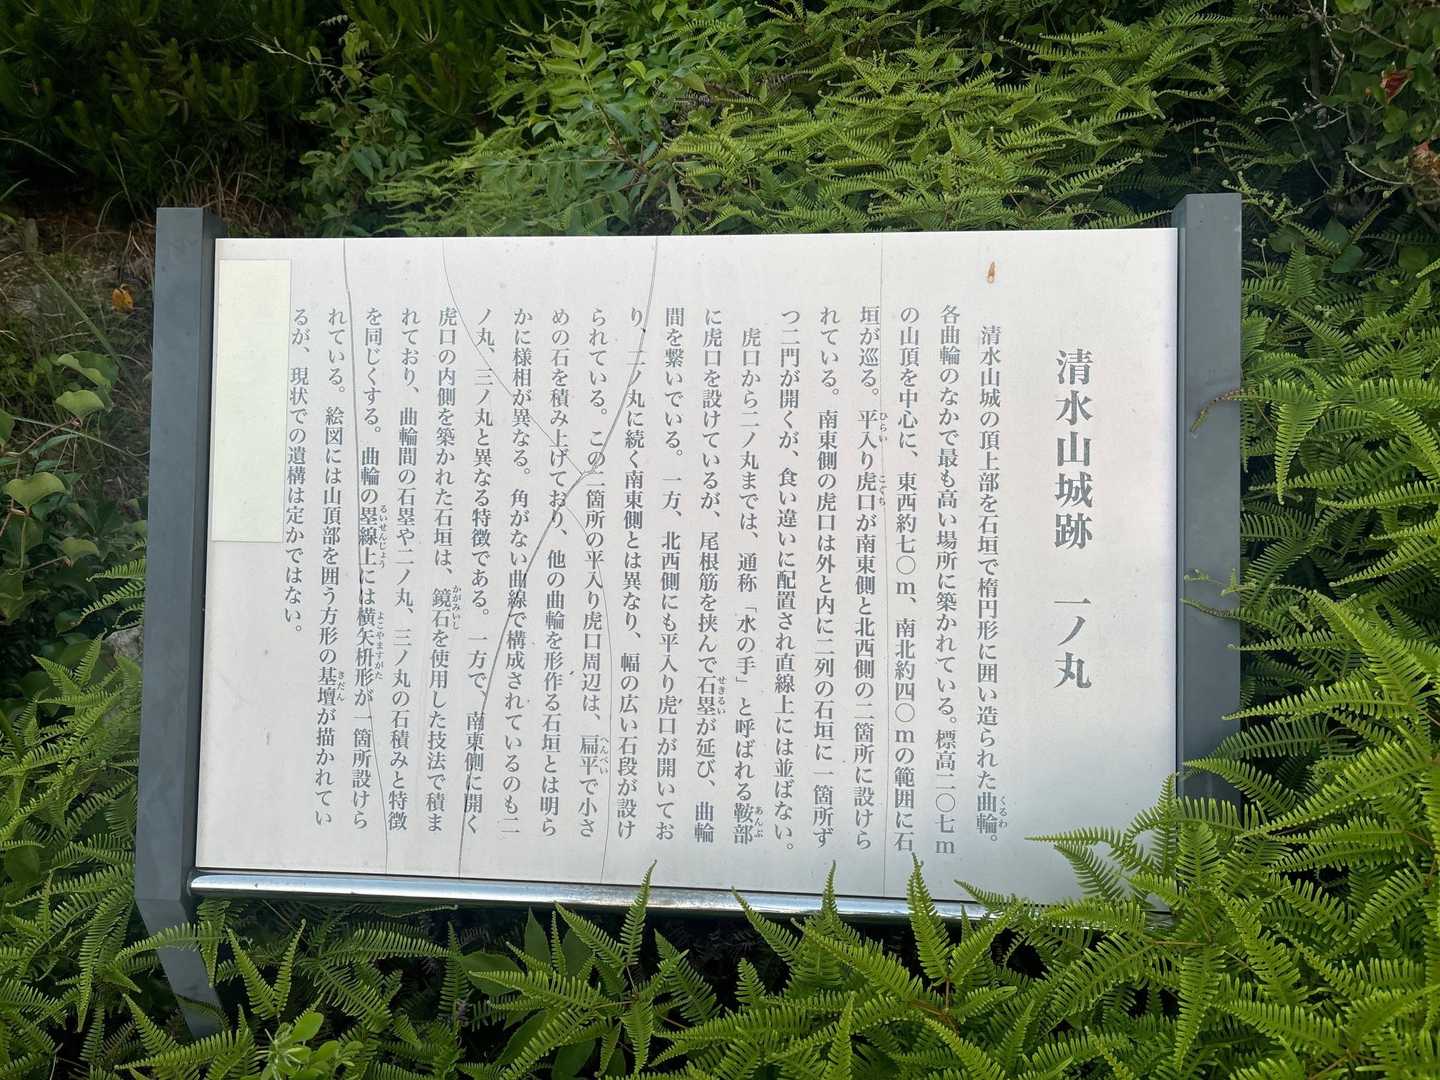 清水山城跡　一ノ丸
清水山城の頂上部を石垣で楕円形に囲い造られた曲輪。
各曲輪のなかで最も高い場所に築かれている。標高二〇七ｍ
の山頂を中心に、東西約七〇ｍ、南北約四〇ｍの範囲に石
垣が巡る。平入り虎口が南東側と北西側の二箇所に設けら
れている。南東側の虎口は外と内に二列の石垣に一箇所ず
つ二門が開くが、食い違いに配置され直線上には並ばない。
虎口から二ノ丸までは、通称「水の手」と呼ばれる鞍部
に虎口を設けているが、尾根筋を挟んで石塁が延び、曲輪
間を繋いでいる。一方、北西側にも平入り虎口が開いてお
り、二ノ丸に続く南東側とは異なり、幅の広い石段が設け
られている。この二箇所の平入り虎口周辺は、扁平で小さ
めの石を積み上げており、他の曲輪を形作る石垣とは明ら
かに様相が異なる。角がない曲線で構成されているのも二
ノ丸、三ノ丸と異なる特徴である。一方で、南東側に開く
虎口の内側を築かれた石垣は、鏡石を使用した技法で積ま
れており、曲輪間の石塁や二ノ丸、三ノ丸の石積みと特徴
を同じくする。曲輪の塁線上には横矢枡形が一箇所設けら
れている。絵図には山頂部を囲う方形の基壇が描かれてい
るが、現状での遺構は定かではない。
くるわ
ひらい
こぐち
あんぶ
せきるい
へんぺい
かがみいし
るいせんじょう
よこやますがた
きだん